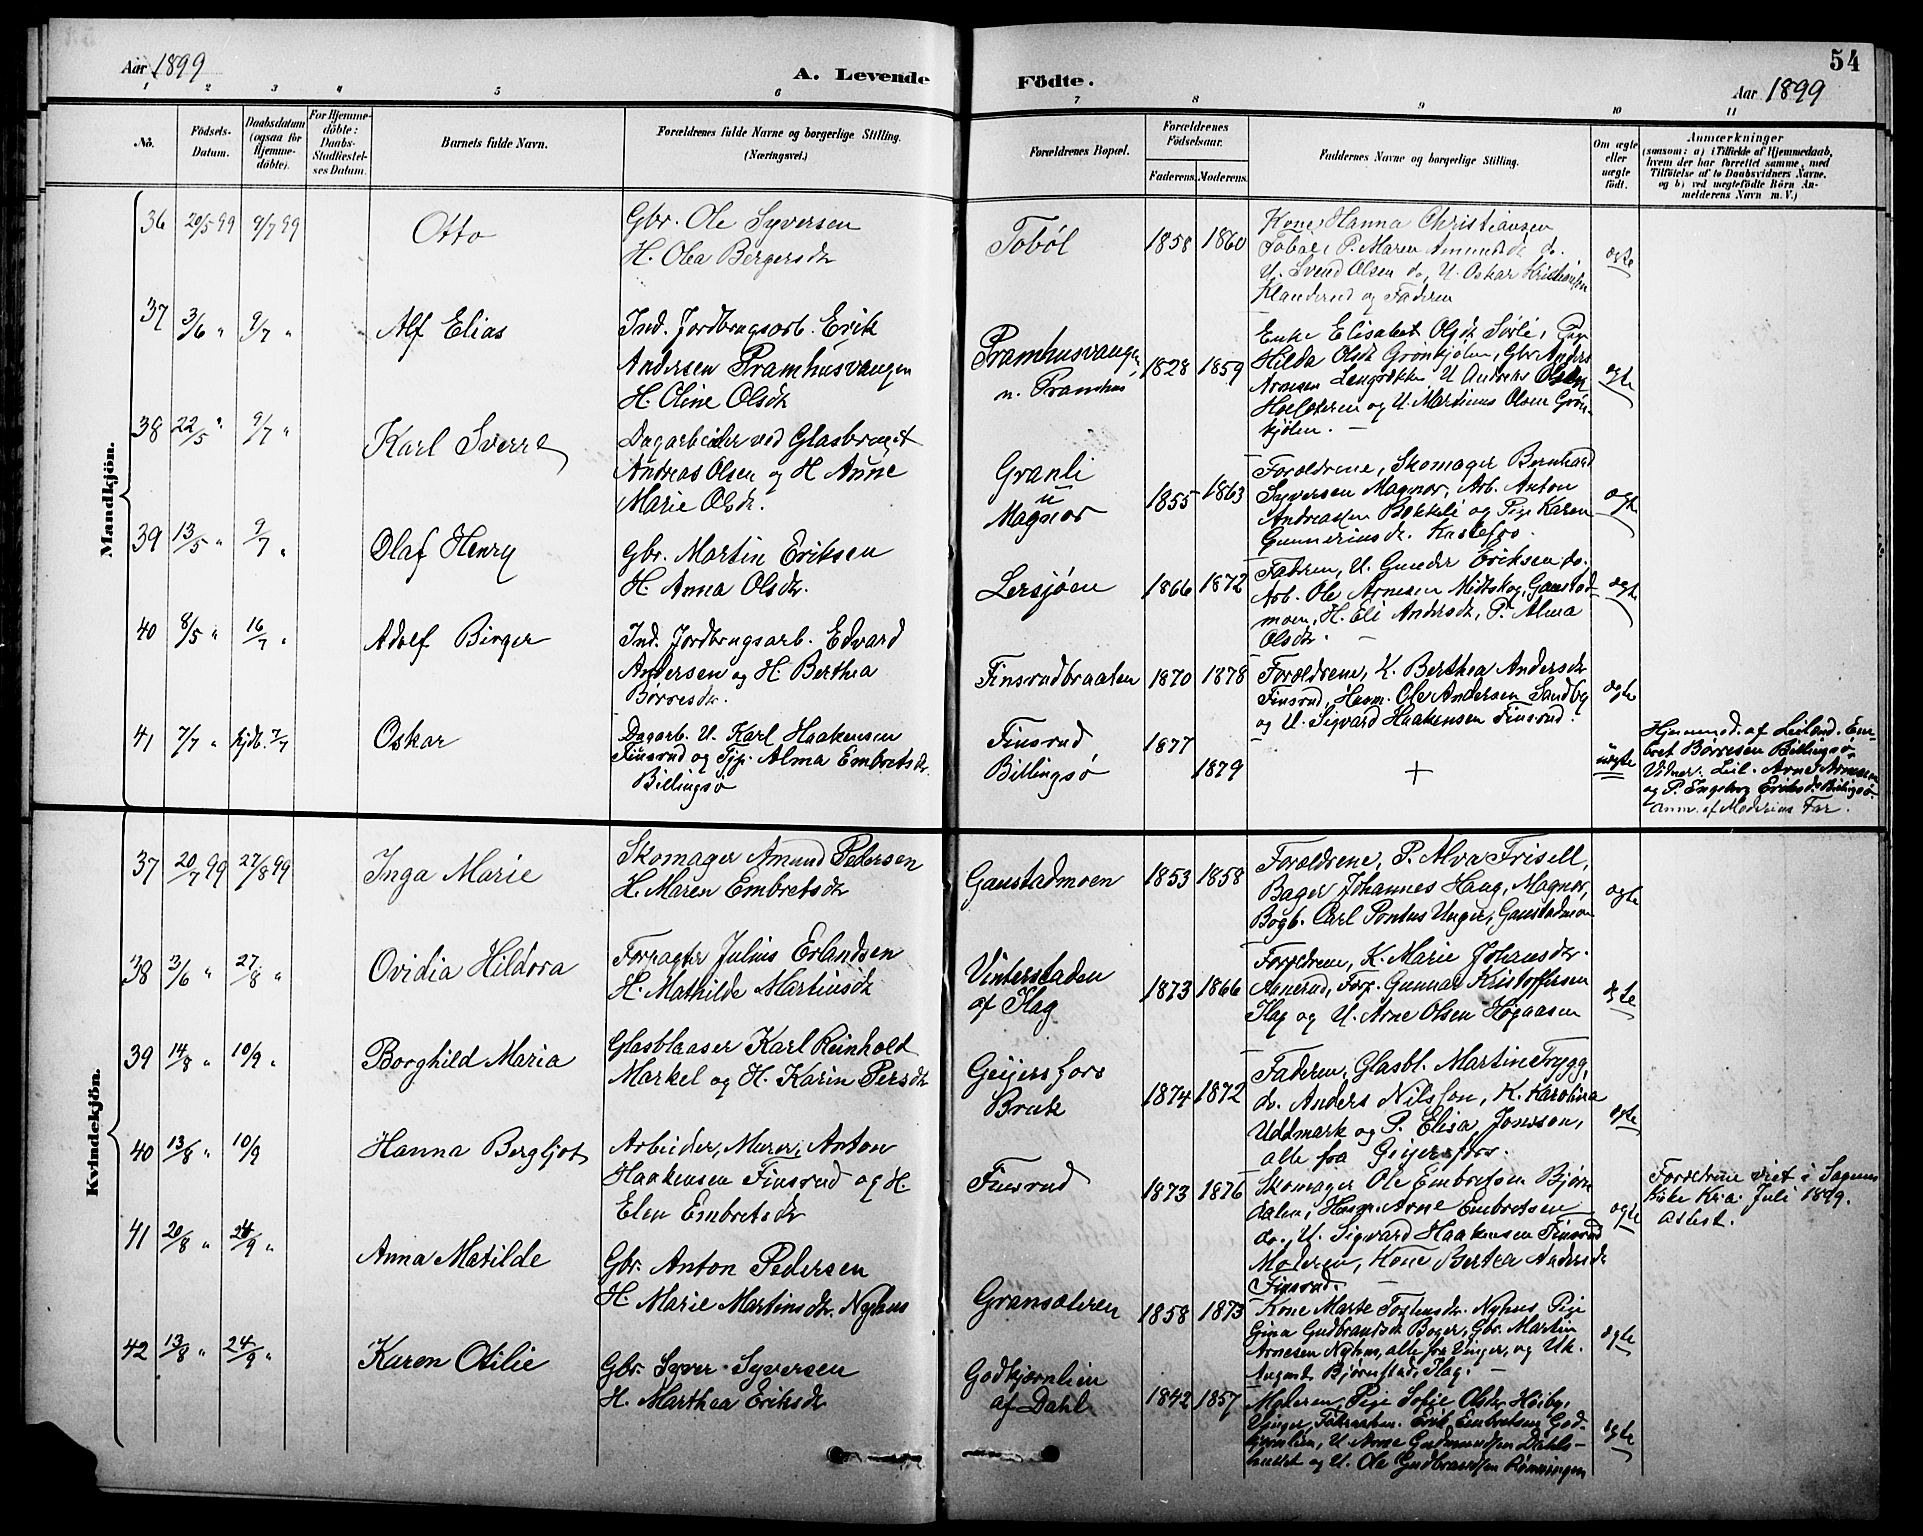 54
Aar 1899
A. Levende Födte.
Aar 1899
1 2 3 4 5 6 7 8 9 10 11
No.
Födsels-
Datum.
Daabsdatum
(ogsaa for
Hjemme-
döbte).
For Hjemme-
döbte:
Daabs-
Stadfæstel-
ses Datum.
Barnets fulde Navn.
Forældrenes fulde Navne og borgerlige Stilling.
(Næringsvei.)
Forældrenes Bopæl.
Forældrenes
Födselsaar.
Faderens. Moderens.
Faddernes Navne og borgerlige Stilling.
Om ægte
eller
uægte
födt.
Anmærkninger
(saasom: a) i Tilfælde af Hjemmedaab,
hvem der har forrettet samme, med
Tilföielse af to Daabsvidners Navne.
og b) ved uægtefödte Börn An-
melderens Navn m. V.)
Mandkjön.
36 20/5 99 9/7 99
Otto
Gbr. Ole Syversen
H. Olea Bergersdr
Tobøl
1858 1860
Kone Hanna Christiansen
Tobøl, P. Maren Amundsdr do.
U. Svend Olsen do, U. Oskar Kristiansen
Klanderud og Faderen
ægte
37 3/6 " 9/7 "
Alf Elias
Ind. Jordbrugsarb. Erik
Andersen Pramhusvangen
H. Oline Olsdr
Pramhusvangen
u. Pramhus
1828 1859
Enke Elisabet Olsdr Sørli, Pige
Hilda Olsdr Grønkjølen, Gbr. Anders
Arnesen Lengrækken, U. Andreas Olsen
Hoelsæteren og U. Martinus Olsen Grøn-
kjølen. —
ægte
38 22/5 " 9/7 "
Karl Sverre
Dagarbeider ved Glasbruget
Andreas Olsen og H. Anne
Marie Olsdr.
Granli
u
Magnor
1855 1863
Forældrene, Skomager Bernhard
Syversen Magnor, Arb. Anton
Andreassen Bekkeli og Pige Karen
Gunneriusdr. Kastefos.
ægte
39 13/5 " 9/7 "
Olaf Henry
Gbr. Martin Eriksen
H. Anna Olsdr.
Lersjøen
1866 1872
Faderen, U. Gunder Eriksen do.
Arb. Ole Arnesen Midtskog, Gaustad-
moen, H. Eli Andersdr, P. Alma
Olsdr. —
ægte
40 8/5 " 16/7 "
Adolf Birger
Ind. Jordbrugsarb. Edvard
Andersen og H. Berthea
Børresdr.
Finsrudbraaten
1870 1878
Forældrene, K. Berthea Andersdr
Finsrud, Husm. Ole Andersen Sandby
og U. Sigvard Haakensen Finsrud.
ægte
41 7/7 " hjdb. 7/7
Oskar
Dagarb. U. Karl Haakensen
Finsrud og Tjp. Alma Embretsdr.
Billingsø
Finsrud
Billingsø
1877
1879
+
uægte
Hjemmed. af Leilend. Em-
bret Børresen Billingsø
Vidner: Leil. Arne Arnesen
og P. Ingeborg Eriksdr Billingsø.
Anm. af Moderens Far.
Kvindekjön.
37 20/7 99 27/8 99
Inga Marie
Skomager Amund Pedersen
H. Maren Embretsdr
Gaustadmoen
1853 1858
Forældrene, P. Alva Frisell,
Bager Johannes Haug, Magnor,
Bogb. Carl Pontus Unger, Gaustadmoen
ægte
38 3/6 " 27/8 "
Ovidia Hildora
Forpagter Julius Erlandsen
H. Mathilde Martinsdr
Vinterstaden
af Flag
1873 1866
Forældrene, K. Marie Johansdr.
Abnerud, Forp. Gunnar Kristoffersen
Flag og U. Arne Olsen Høgaasen
ægte
39 14/8 " 10/9 "
Borghild Maria
Glasblaaser Karl Reinhold
Markel og H. Karin Persdr
Geijersfors
Bruk
1874 1872
Faderen, Glasbl. Martin Trygg,
do. Anders Nilsson, K. Karolina
Uddmark og P. Elisa Jonsson,
alle fra Geijersfors.
ægte
40 13/8 " 10/9
Hanna Bergljot
Arbeider, Murer, Anton
Haakensen Finsrud og H.
Elen Embretsdr
Finsrud
1873 1876
Skomager Ole Embretsen Bjørn
dalen, Husm. Arne Embretsen
do., U. Sigvard Haakensen Finsrud
Moderen, Kone Berthea Andersdr
Finsrud. —
ægte
Forældrene viet i Sagenes
Kirke Kr.a. Juli 1899.
attest.
41 20/8 " 24/9 "
Anna Matilde
Gbr. Anton Pedersen
H. Marie Martinsdr. Nyhus
Gransæteren
1858 1873
Kone Marte Torkelsdr. Nyhus, Pige
Gina Gudbrandsdr Boger, Gbr. Martin
Arnesen Nyhus, alle fra Vinger, og Uk.
August Bjørnstad, Flag. —
ægte
42 13/8 " 24/9 "
Karen Otilie
Gbr. Syver Syversen
H. Marthea Eriksdr
Godkjærnlien
af Dahl
1842 1857
Moderen, Pige Sofie Olsdr Høiby,
Vinger, Erik Embretsen God-
kjærnlien, U. Arne Gudmundsen Dahls-
hullet og U. Ole Gudbrandsen Rønningen
ægte